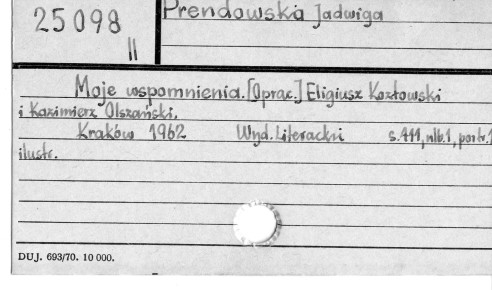 25098
II
Prendowska Jadwiga
Moje wspomnienia. [Oprac.] Eligiusz Kozłowski
i Kazimierz Olszański.
Kraków 1962 Wyd. Literackie s. 411, nlb. 1, portr. 1
ilustr.
DUJ. 693/70. 10 000.